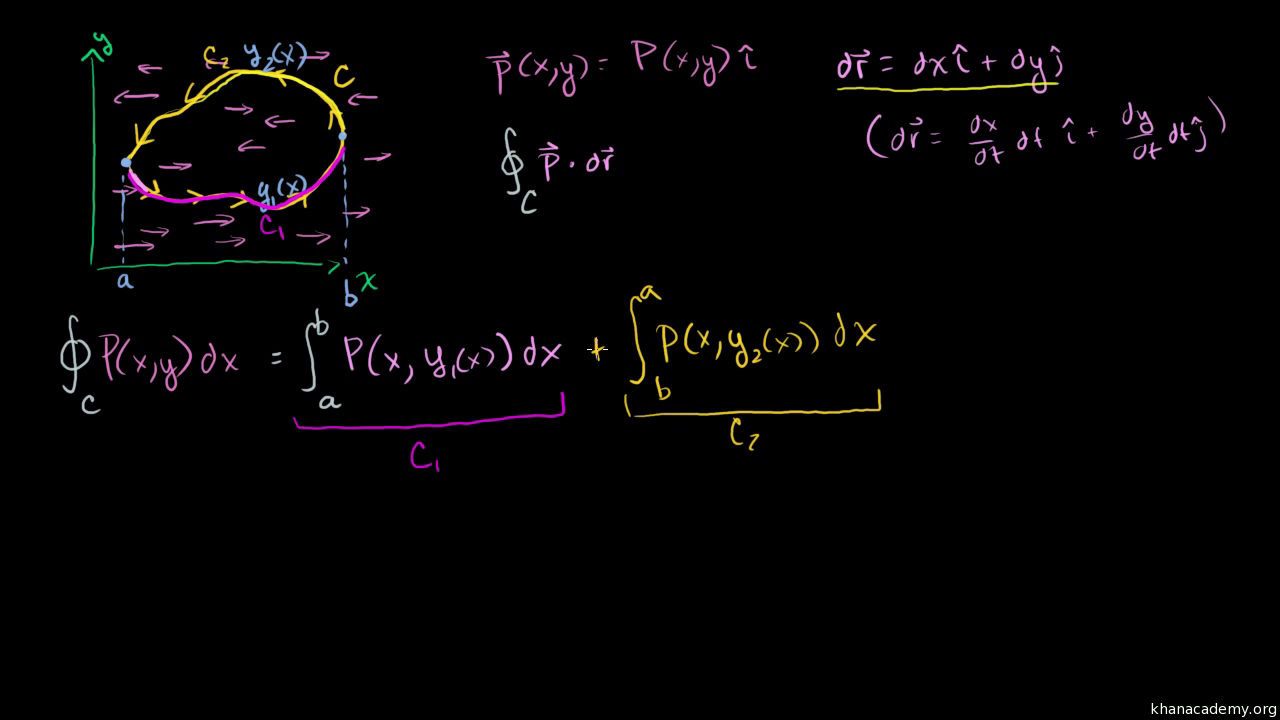 y
C₂ y₂(x)
C
y₁(x)
C₁
a
b x
p⃗(x,y) = P(x,y) î
∮_C p⃗ · dr⃗
dr⃗ = dx î + dy ĵ
(dr⃗ = dx/dt dt î + dy/dt dt ĵ)
∮_C P(x,y) dx = ∫_a^b P(x, y₁(x)) dx + ∫_b^a P(x, y₂(x)) dx
C₁
C₂
khanacademy.org